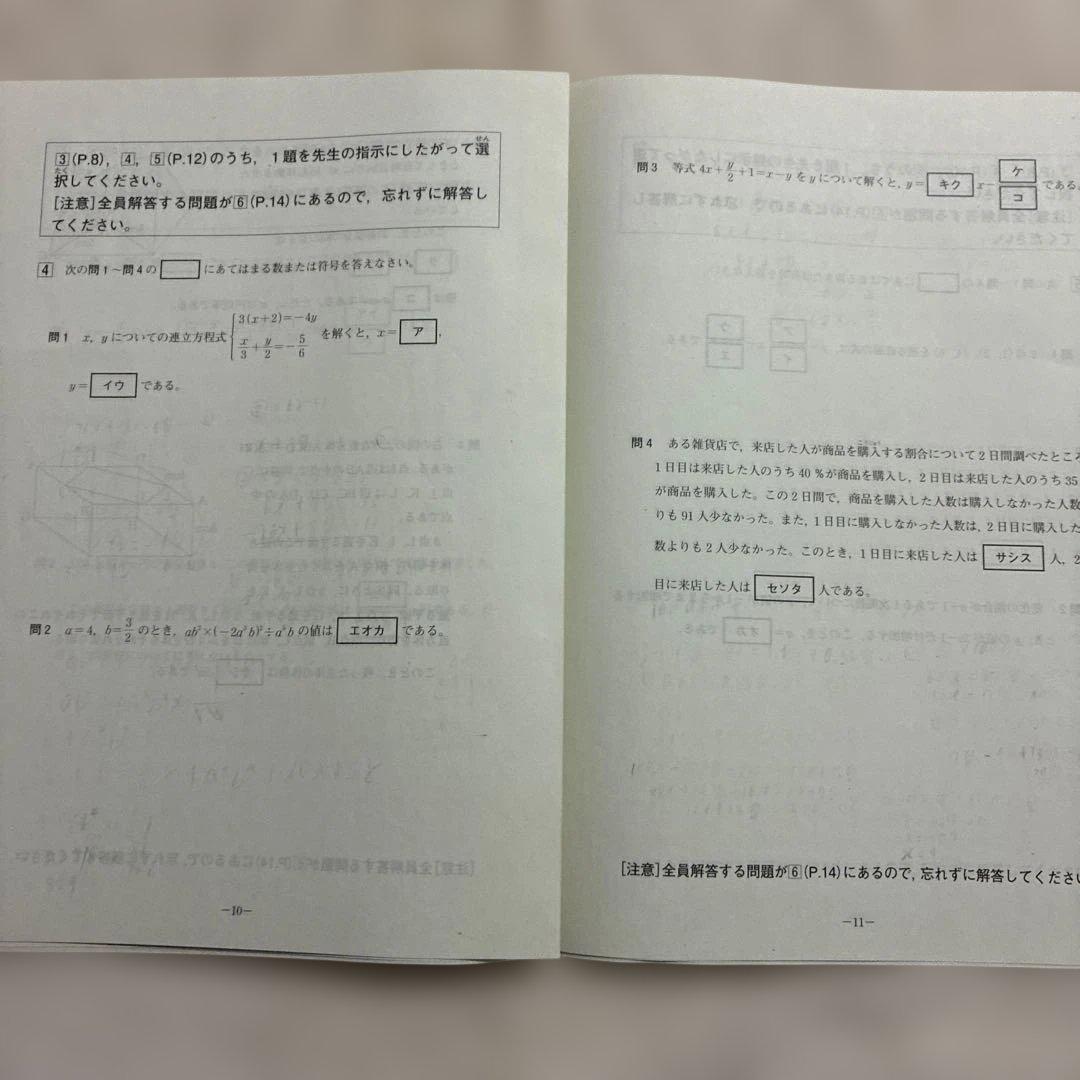 3(P.8), 4, 5(P.12)のうち, 1題を先生の指示にしたがって選
せん
択してください。
たく
[注意]全員解答する問題が6(P.14)にあるので, 忘れずに解答し
てください。
4 次の問1～問4の□にあてはまる数または符号を答えなさい。
問1 x, yについての連立方程式{3(x+2)=-4y
x/3+y/2=-5/6 を解くと, x=ア,
y=イウである。
問2 a=4, b=3/2のとき, ab²×(-2a³b)²÷a⁵bの値はエオカである。
-10-
問3 等式4x+y/2+1=x-yをyについて解くと, y=キクx-ケ/コである。
問4 ある雑貨店で, 来店した人が商品を購入する割合について2日間調べたところ
1日目は来店した人のうち40%が商品を購入し, 2日目は来店した人のうち35
が商品を購入した。この2日間で, 商品を購入した人数は購入しなかった人数
りも91人少なかった。また, 1日目に購入しなかった人数は, 2日目に購入した
数よりも2人少なかった。このとき, 1日目に来店した人はサシス人, 2
目に来店した人はセソタ人である。
[注意]全員解答する問題が6(P.14)にあるので, 忘れずに解答してください
-11-